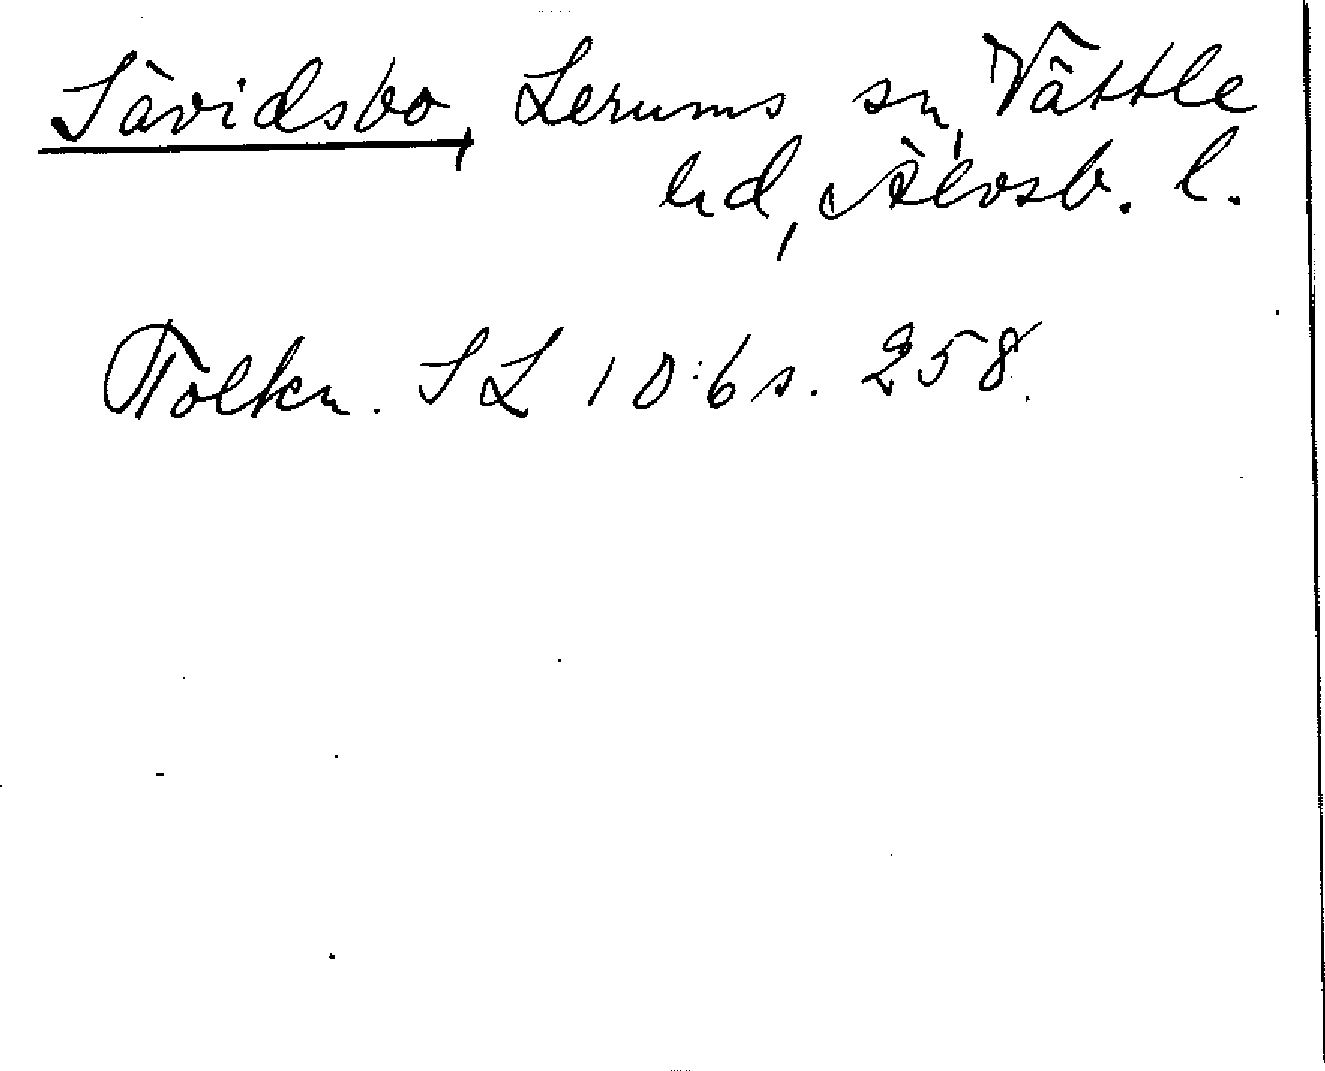 Sävidsbo, Lerums sn, Vättle
hd, Älvsb. l.
Tolkn. SL 10:6 s. 258.